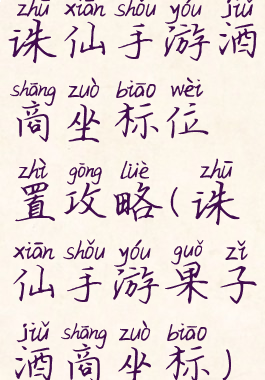 zhū xiān shǒu yóu jiǔ
诛仙手游酒
shāng zuò biāo wèi
商坐标位
zhì gōng lüè zhū
置攻略(诛
xiān shǒu yóu guǒ zǐ
仙手游果子
jiǔ shāng zuò biāo
酒商坐标)